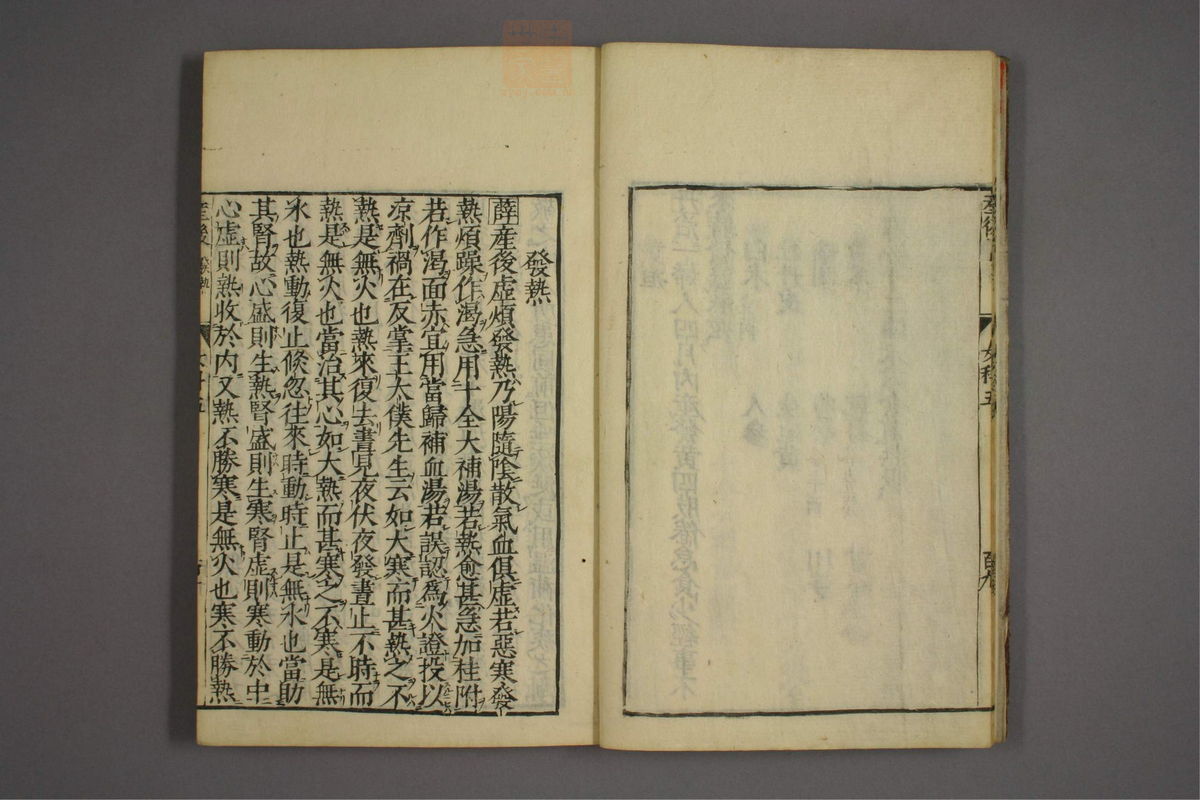 發熱
薛產後虛煩發熱乃陽隨陰散氣血俱虛若惡寒發
熱煩躁作渴急用十全大補湯若熱愈甚急加桂附
若作渴面赤宜用當歸補血湯若誤認爲火證投以
凉劑禍在反掌王太僕先生云如大寒而甚熱之不
熱是無火也熱來復去晝見夜伏夜發晝止不時而
熱是無火也當治其心如大熱而甚寒之不寒是無
水也熱動復止倏忽往來時動時止是無水也當助
其腎故心盛則生熱腎盛則生寒腎虛則寒動於中
心虛則熱收於内又熱不勝寒是無火也寒不勝熱
產後 發熱
女科五
產後
百九